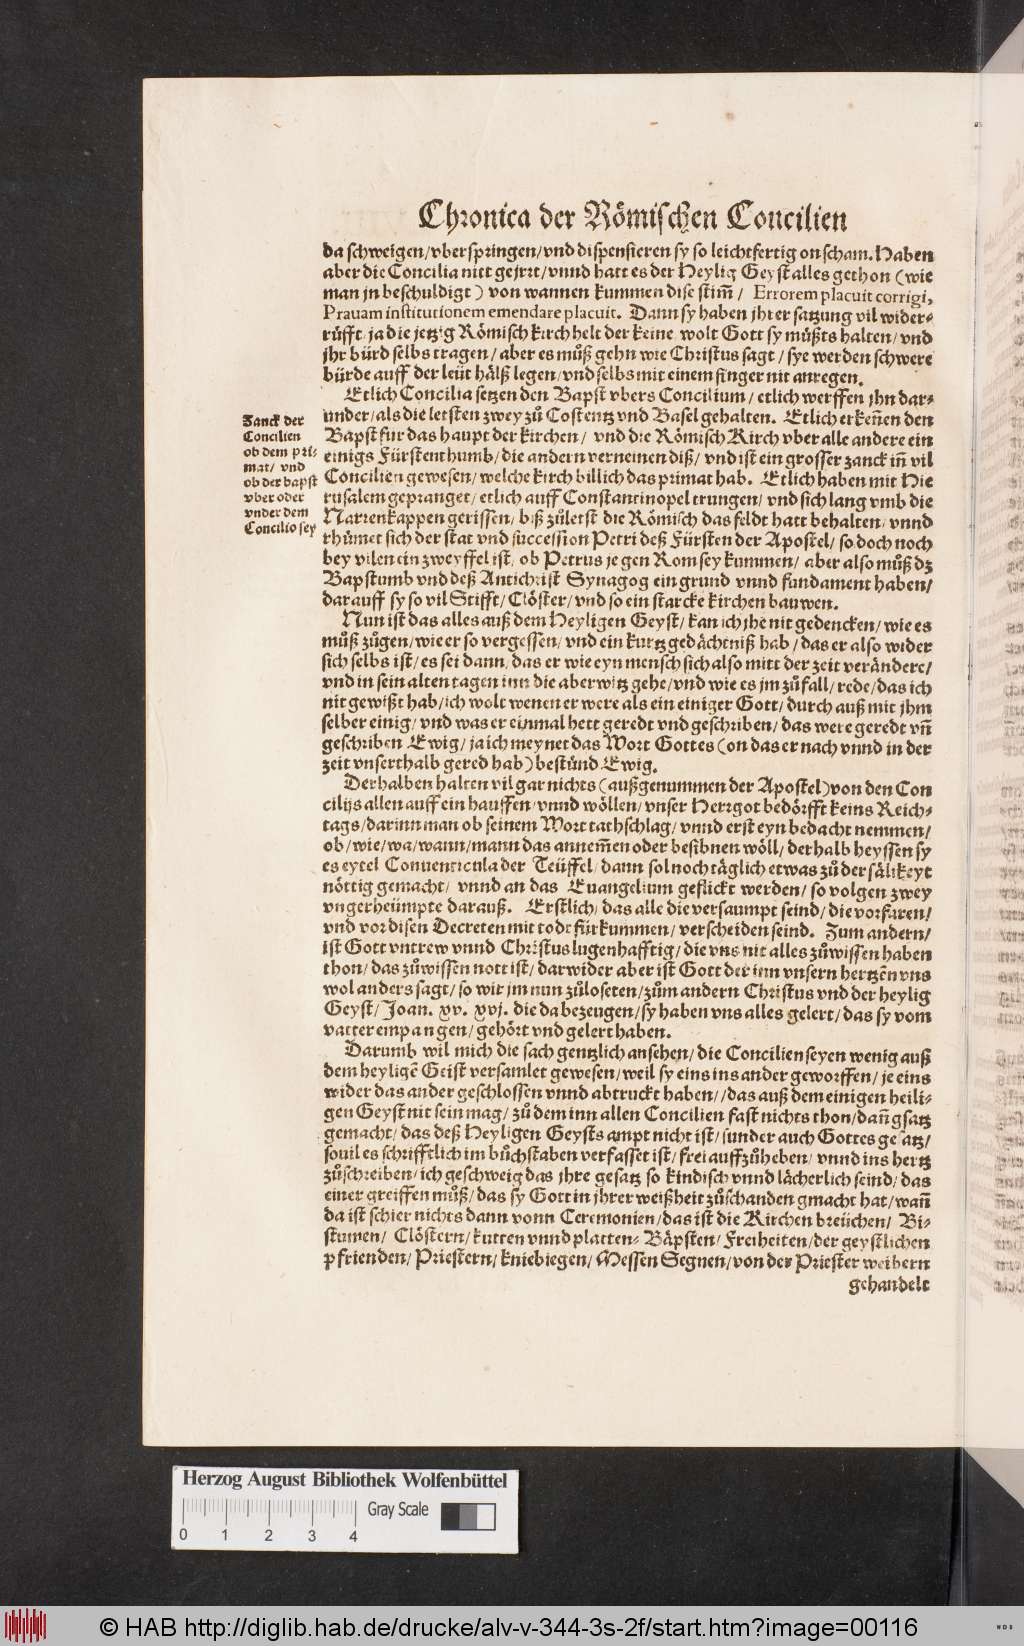 Chronica der Römischen Concilien
da schweigen/vberspringen/vnd dispensieren sy so leichtfertig on scham. Haben
aber die Concilia nitt gejrrt/vnnd hatt es der Heylig Geyst alles gethon (wie
man jn beschuldigt) von wannen kummen dise stim̃/ Errorem placuit corrigi,
Prauam institutionem emendare placuit. Dann sy haben jhrer satzung vil wider-
růfft, ja die jetzig Römisch kirch helt der keine, wolt Gott sy můßts halten/vnd
jhr bürd selbs tragen/aber es můß gehn wie Christus sagt/sye werden schwere
bürde auff der leüt hälß legen/vnd selbs mit einem finger nit anregen.
Etlich Concilia setzen den Bapst vbers Concilium/etlich werffen jhn dar-
under/als die letsten zwey zů Costentz vnd Basel gehalten. Etlich erkeñen den
Bapst für das haupt der kirchen/ vnd die Römisch Kirch vber alle andere ein
einigs Fürstenthumb/die andern verneinen diß/vnd ist ein grosser zanck iñ vil
Concilien gewesen/welche kirch billich das primat hab. Etlich haben mit Hie
rusalem gepranget/etlich auff Constantinopel trungen/vnd sich lang vmb die
Narrenkappen gerissen/biß zůletst die Römisch das feldt hatt behalten/vnnd
rhůmet sich der stat vnd succession Petri deß Fürsten der Apostel/so doch noch
bey vilen ein zweyffel ist, ob Petrus je gen Rom sey kummen/aber also můß dz
Bapstumb vnd deß Antichrist Synagog ein grund vnnd fundament haben/
darauff sy so vil Stifft/Clöster/vnd so ein starcke kirchen bauwen.
Zanck der
Concilien
ob dem pri-
mat/vnd
ob der bapst
vber oder
vnder dem
Concilio sey
Nun ist das alles auß dem Heyligen Geyst/kan ich jhe nit gedencken/wie es
můß zůgen/wie er so vergessen/vnd ein kurtz gedächtniß hab/das er also wider
sich selbs ist/es sei dann, das er wie eyn mensch sich also mitt der zeit verändere/
vnd in sein alten tagen inn die aberwitz gehe/vnd wie es jm zůfall/rede/das ich
nit gewißt hab/ich wolt wenen er were als ein einiger Gott/durch auß mit jhm
selber einig/vnd was er einmal hett geredt vnd geschriben/das were geredt vñ
geschriben Ewig/ja ich meynet das Wort Gottes (on das er nach vnnd in der
zeit vnserthalb gered hab) bestünd Ewig.
Derhalben halten vil gar nichts (außgenummen der Apostel) von den Con
cilijs allen auff ein hauffen/vnnd wöllen/vnser Herrgot bedörfft keins Reich-
tags/darinn man ob seinem Wort rathschlag/vnnd erst eyn bedacht nemmen/
ob/wie/wa/wann/mann das annem̃en oder besibnen wöll/derhalb heyssen sy
es eytel Conuenticula der Teüffel/dann sol noch täglich etwas zů der sälikeyt
nöttig gemacht/ vnnd an das Euangelium geflickt werden/so volgen zwey
vngerheümpte darauß. Erstlich/das alle die versaumpt seind/die vorfaren/
vnd vor disen Decreten mit todt fürkummen/verscheiden seind. Zum andern/
ist Gott vntrew vnnd Christus lugenhafftig/die vns nit alles zůwissen haben
thon/das zůwissen nott ist/darwider aber ist Gott der inn vnsern hertzẽn vns
wol anders sagt/so wir jm nun zůloseten/zům andern Christus vnd der heylig
Geyst/Joan. xv. xvj. die da bezeugen/sy haben vns alles gelert/das sy vom
vatter empangen/gehört vnd gelert haben.
Darumb wil mich die sach gentzlich ansehen/die Concilien seyen wenig auß
dem heyligẽ Geist versamlet gewesen/weil sy eins ins ander geworffen/je eins
wider das ander geschlossen vnnd abtruckt haben//das auß dem einigen heili-
gen Geyst nit sein mag/zů dem inn allen Concilien fast nichts thon/dañ gsatz
gemacht/das deß Heyligen Geysts ampt nicht ist/sunder auch Gottes gesatz/
souil es schrifftlich im bůchstaben verfasset ist/frei auffzůheben/vnnd ins hertz
zůschreiben/ich geschweig das jhre gesatz so kindisch vnnd lächerlich seind/das
einer greiffen můß/das sy Gott in jhrer weißheit zůschanden gmacht hat/wañ
da ist schier nichts dann vonn Ceremonien/das ist die Kirchen breüchen/ Bi-
stumen/ Clöstern/kutten vnnd platten- Bäpsten/Freiheiten/der geystlichen
pfrienden/Priestern/kniebiegen/Messen Segnen/von der Priester weibern
gehandelt
Herzog August Bibliothek Wolfenbüttel
Gray Scale
0 1 2 3 4
© HAB http://diglib.hab.de/drucke/alv-v-344-3s-2f/start.htm?image=00116